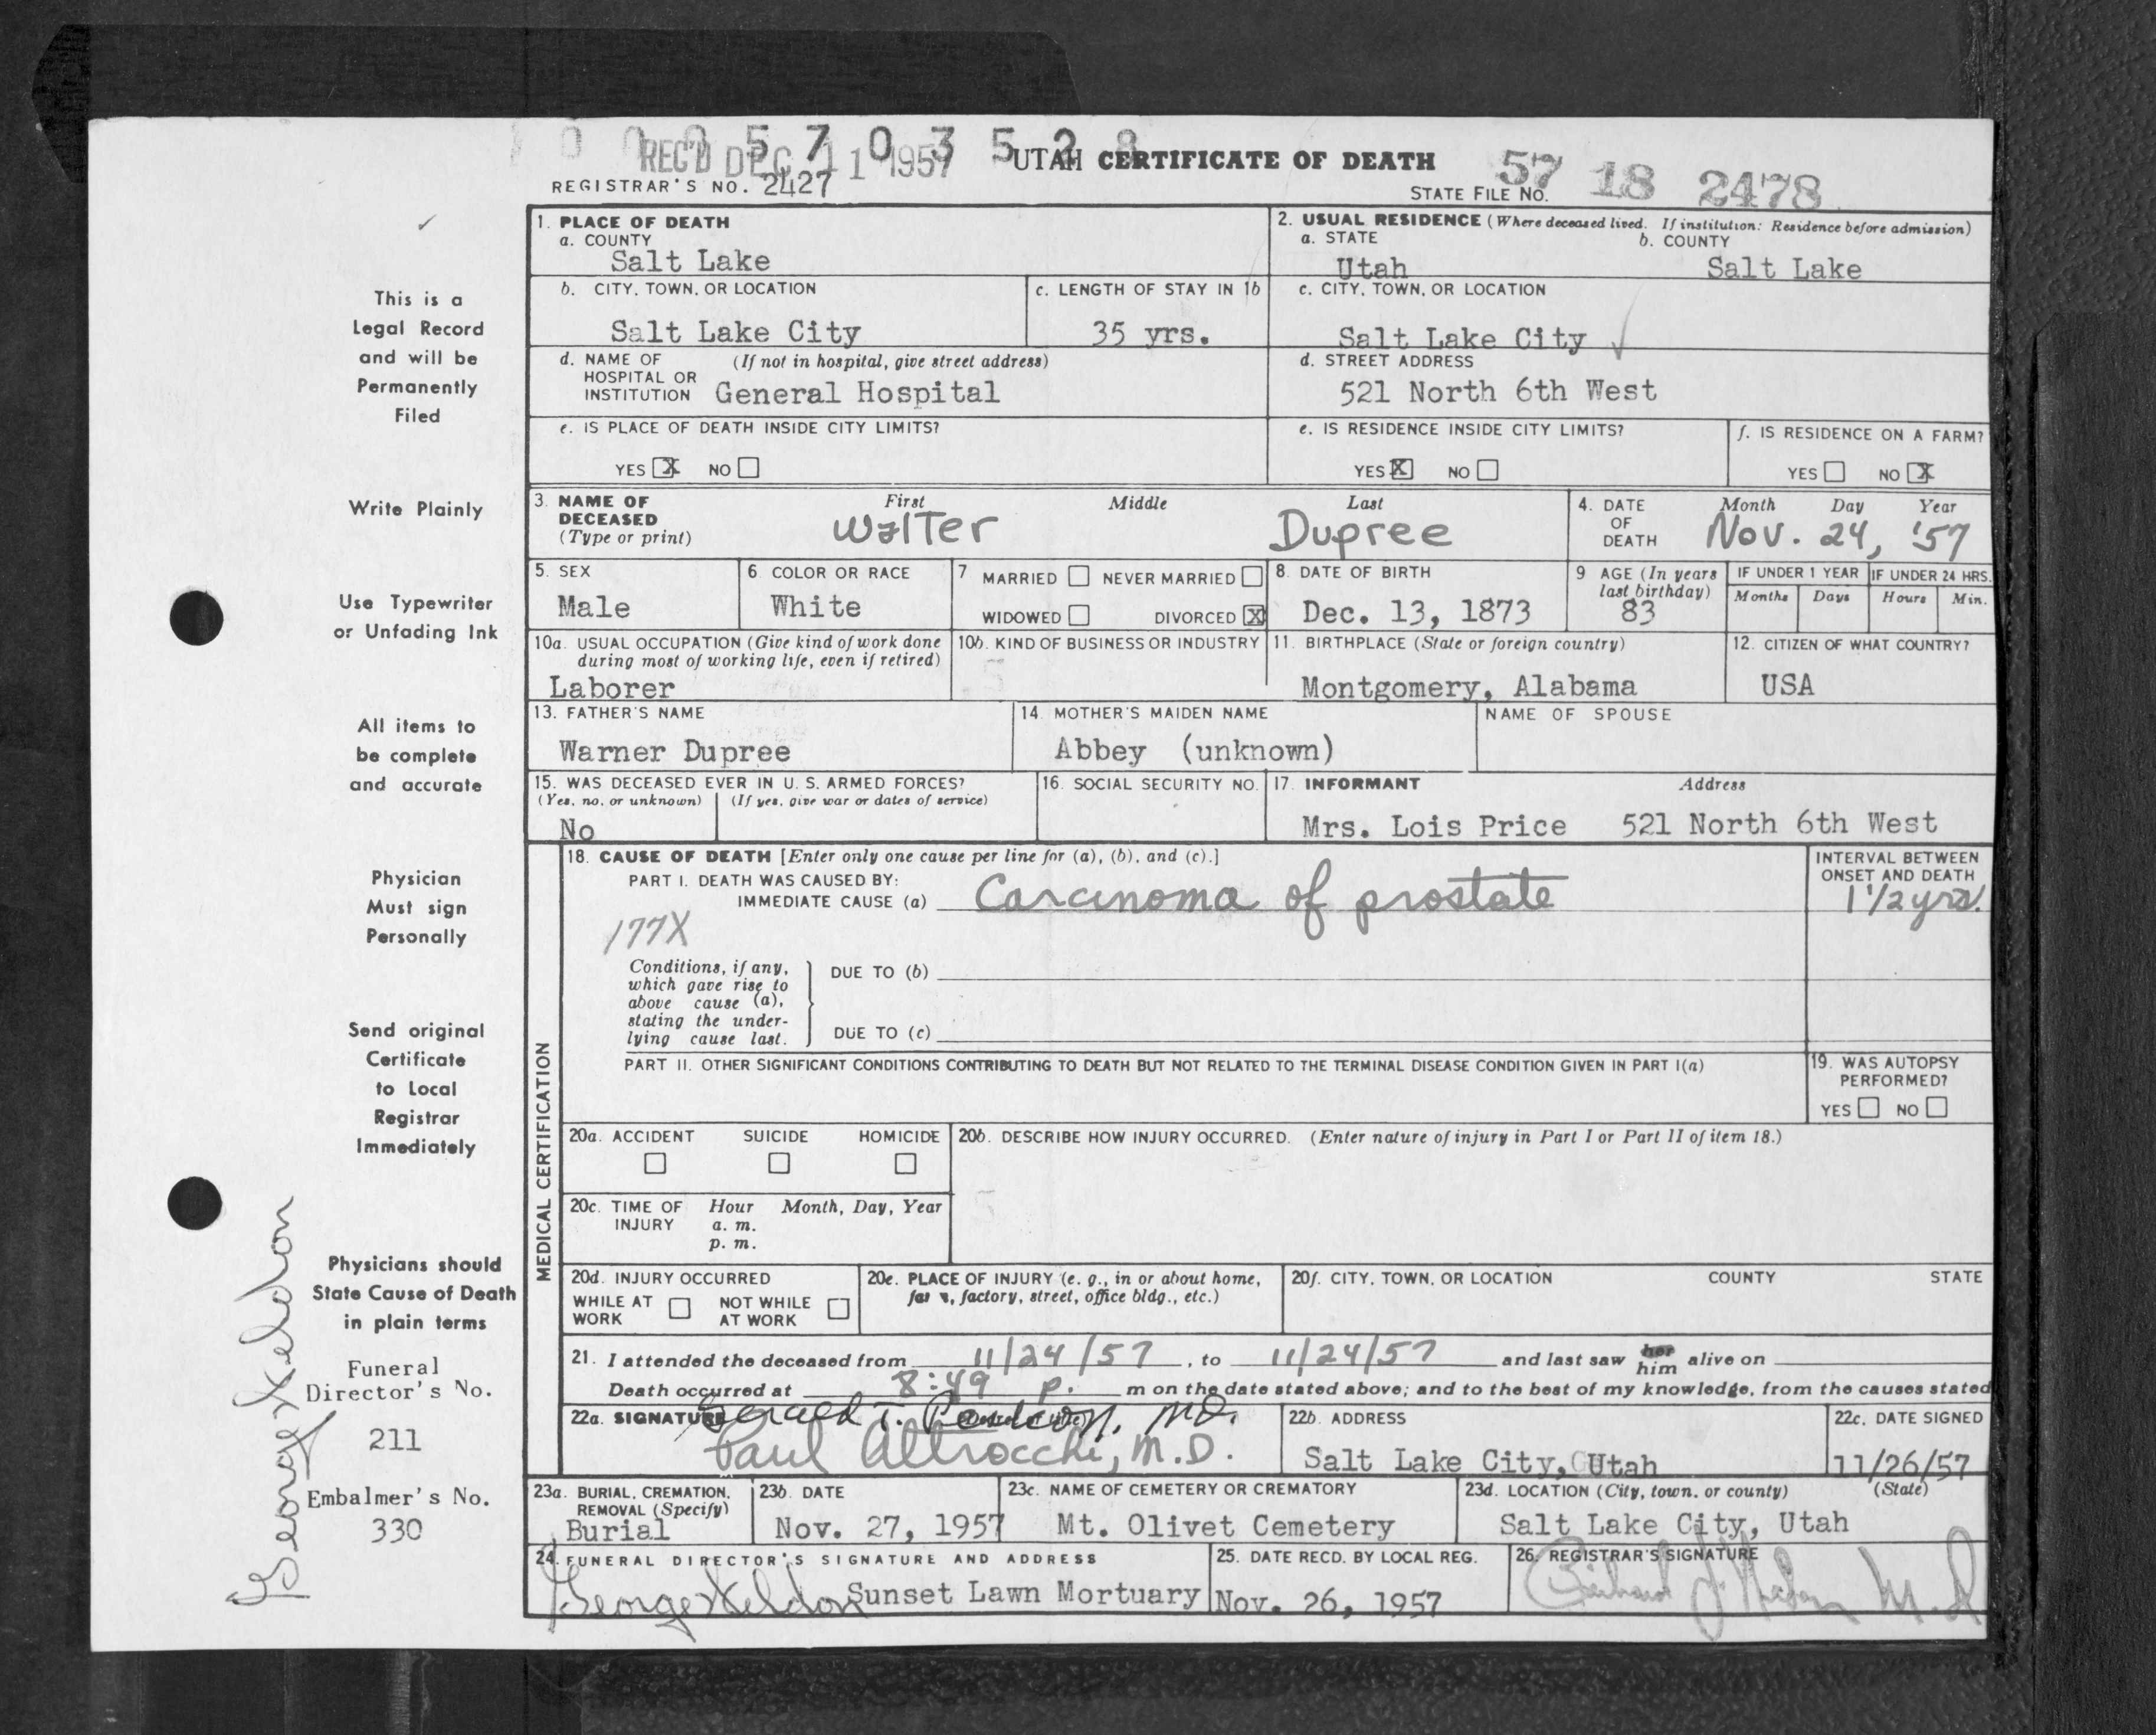 0 0 0 5 7 0 3 5 2 8
REC'D DEC 11 1957
UTAH CERTIFICATE OF DEATH
REGISTRAR'S NO. 2427
STATE FILE NO. 57 18 2478
This is a
Legal Record
and will be
Permanently
Filed
Write Plainly
Use Typewriter
or Unfading Ink
All items to
be complete
and accurate
Physician
Must sign
Personally
Send original
Certificate
to Local
Registrar
Immediately
Physicians should
State Cause of Death
in plain terms
Funeral
Director's No.
211
Embalmer's No.
330
George Xeldon
1. PLACE OF DEATH
a. COUNTY
Salt Lake
2. USUAL RESIDENCE (Where deceased lived. If institution: Residence before admission)
a. STATE b. COUNTY
Utah Salt Lake
b. CITY, TOWN, OR LOCATION
Salt Lake City
c. LENGTH OF STAY IN 1b
35 yrs.
c. CITY, TOWN, OR LOCATION
Salt Lake City
d. NAME OF (If not in hospital, give street address)
HOSPITAL OR
INSTITUTION General Hospital
d. STREET ADDRESS
521 North 6th West
e. IS PLACE OF DEATH INSIDE CITY LIMITS?
YES X NO
e. IS RESIDENCE INSIDE CITY LIMITS?
YES X NO
f. IS RESIDENCE ON A FARM?
YES NO X
3. NAME OF First Middle Last
DECEASED
(Type or print) Walter Dupree
4. DATE Month Day Year
OF
DEATH Nov. 24, '57
5. SEX
Male
6 COLOR OR RACE
White
7 MARRIED NEVER MARRIED
WIDOWED DIVORCED X
8. DATE OF BIRTH
Dec. 13, 1873
9 AGE (In years
last birthday)
83
IF UNDER 1 YEAR IF UNDER 24 HRS.
Months Days Hours Min.
10a. USUAL OCCUPATION (Give kind of work done
during most of working life, even if retired)
Laborer
10b. KIND OF BUSINESS OR INDUSTRY
11. BIRTHPLACE (State or foreign country)
Montgomery, Alabama
12. CITIZEN OF WHAT COUNTRY?
USA
13. FATHER'S NAME
Warner Dupree
14. MOTHER'S MAIDEN NAME
Abbey (unknown)
NAME OF SPOUSE
15. WAS DECEASED EVER IN U. S. ARMED FORCES?
(Yes, no, or unknown) (If yes, give war or dates of service)
No
16. SOCIAL SECURITY NO.
17. INFORMANT Address
Mrs. Lois Price 521 North 6th West
MEDICAL CERTIFICATION
18. CAUSE OF DEATH [Enter only one cause per line for (a), (b), and (c).]
PART I. DEATH WAS CAUSED BY:
IMMEDIATE CAUSE (a) Carcinoma of prostate
INTERVAL BETWEEN
ONSET AND DEATH
1 1/2 yrs.
177X
Conditions, if any,
which gave rise to
above cause (a),
stating the under-
lying cause last.
DUE TO (b)
DUE TO (c)
PART II. OTHER SIGNIFICANT CONDITIONS CONTRIBUTING TO DEATH BUT NOT RELATED TO THE TERMINAL DISEASE CONDITION GIVEN IN PART I(a)
19. WAS AUTOPSY
PERFORMED?
YES NO
20a. ACCIDENT SUICIDE HOMICIDE
20b. DESCRIBE HOW INJURY OCCURRED. (Enter nature of injury in Part I or Part II of item 18.)
20c. TIME OF Hour Month, Day, Year
INJURY a. m.
p. m.
20d. INJURY OCCURRED
WHILE AT NOT WHILE
WORK AT WORK
20e. PLACE OF INJURY (e. g., in or about home,
farm, factory, street, office bldg., etc.)
20f. CITY, TOWN, OR LOCATION COUNTY STATE
21. I attended the deceased from 11/24/57, to 11/24/57 and last saw her him alive on
Death occurred at 8:49 p. m on the date stated above; and to the best of my knowledge, from the causes stated
22a. SIGNATURE Gerald T. M.D.
Paul Altrocchi, M.D.
22b. ADDRESS
Salt Lake City, Utah
22c. DATE SIGNED
11/26/57
23a. BURIAL, CREMATION,
REMOVAL (Specify)
Burial
23b. DATE
Nov. 27, 1957
23c. NAME OF CEMETERY OR CREMATORY
Mt. Olivet Cemetery
23d. LOCATION (City, town, or county) (State)
Salt Lake City, Utah
24. FUNERAL DIRECTOR'S SIGNATURE AND ADDRESS
George Xeldon Sunset Lawn Mortuary
25. DATE RECD. BY LOCAL REG.
Nov. 26, 1957
26. REGISTRAR'S SIGNATURE
M.D.